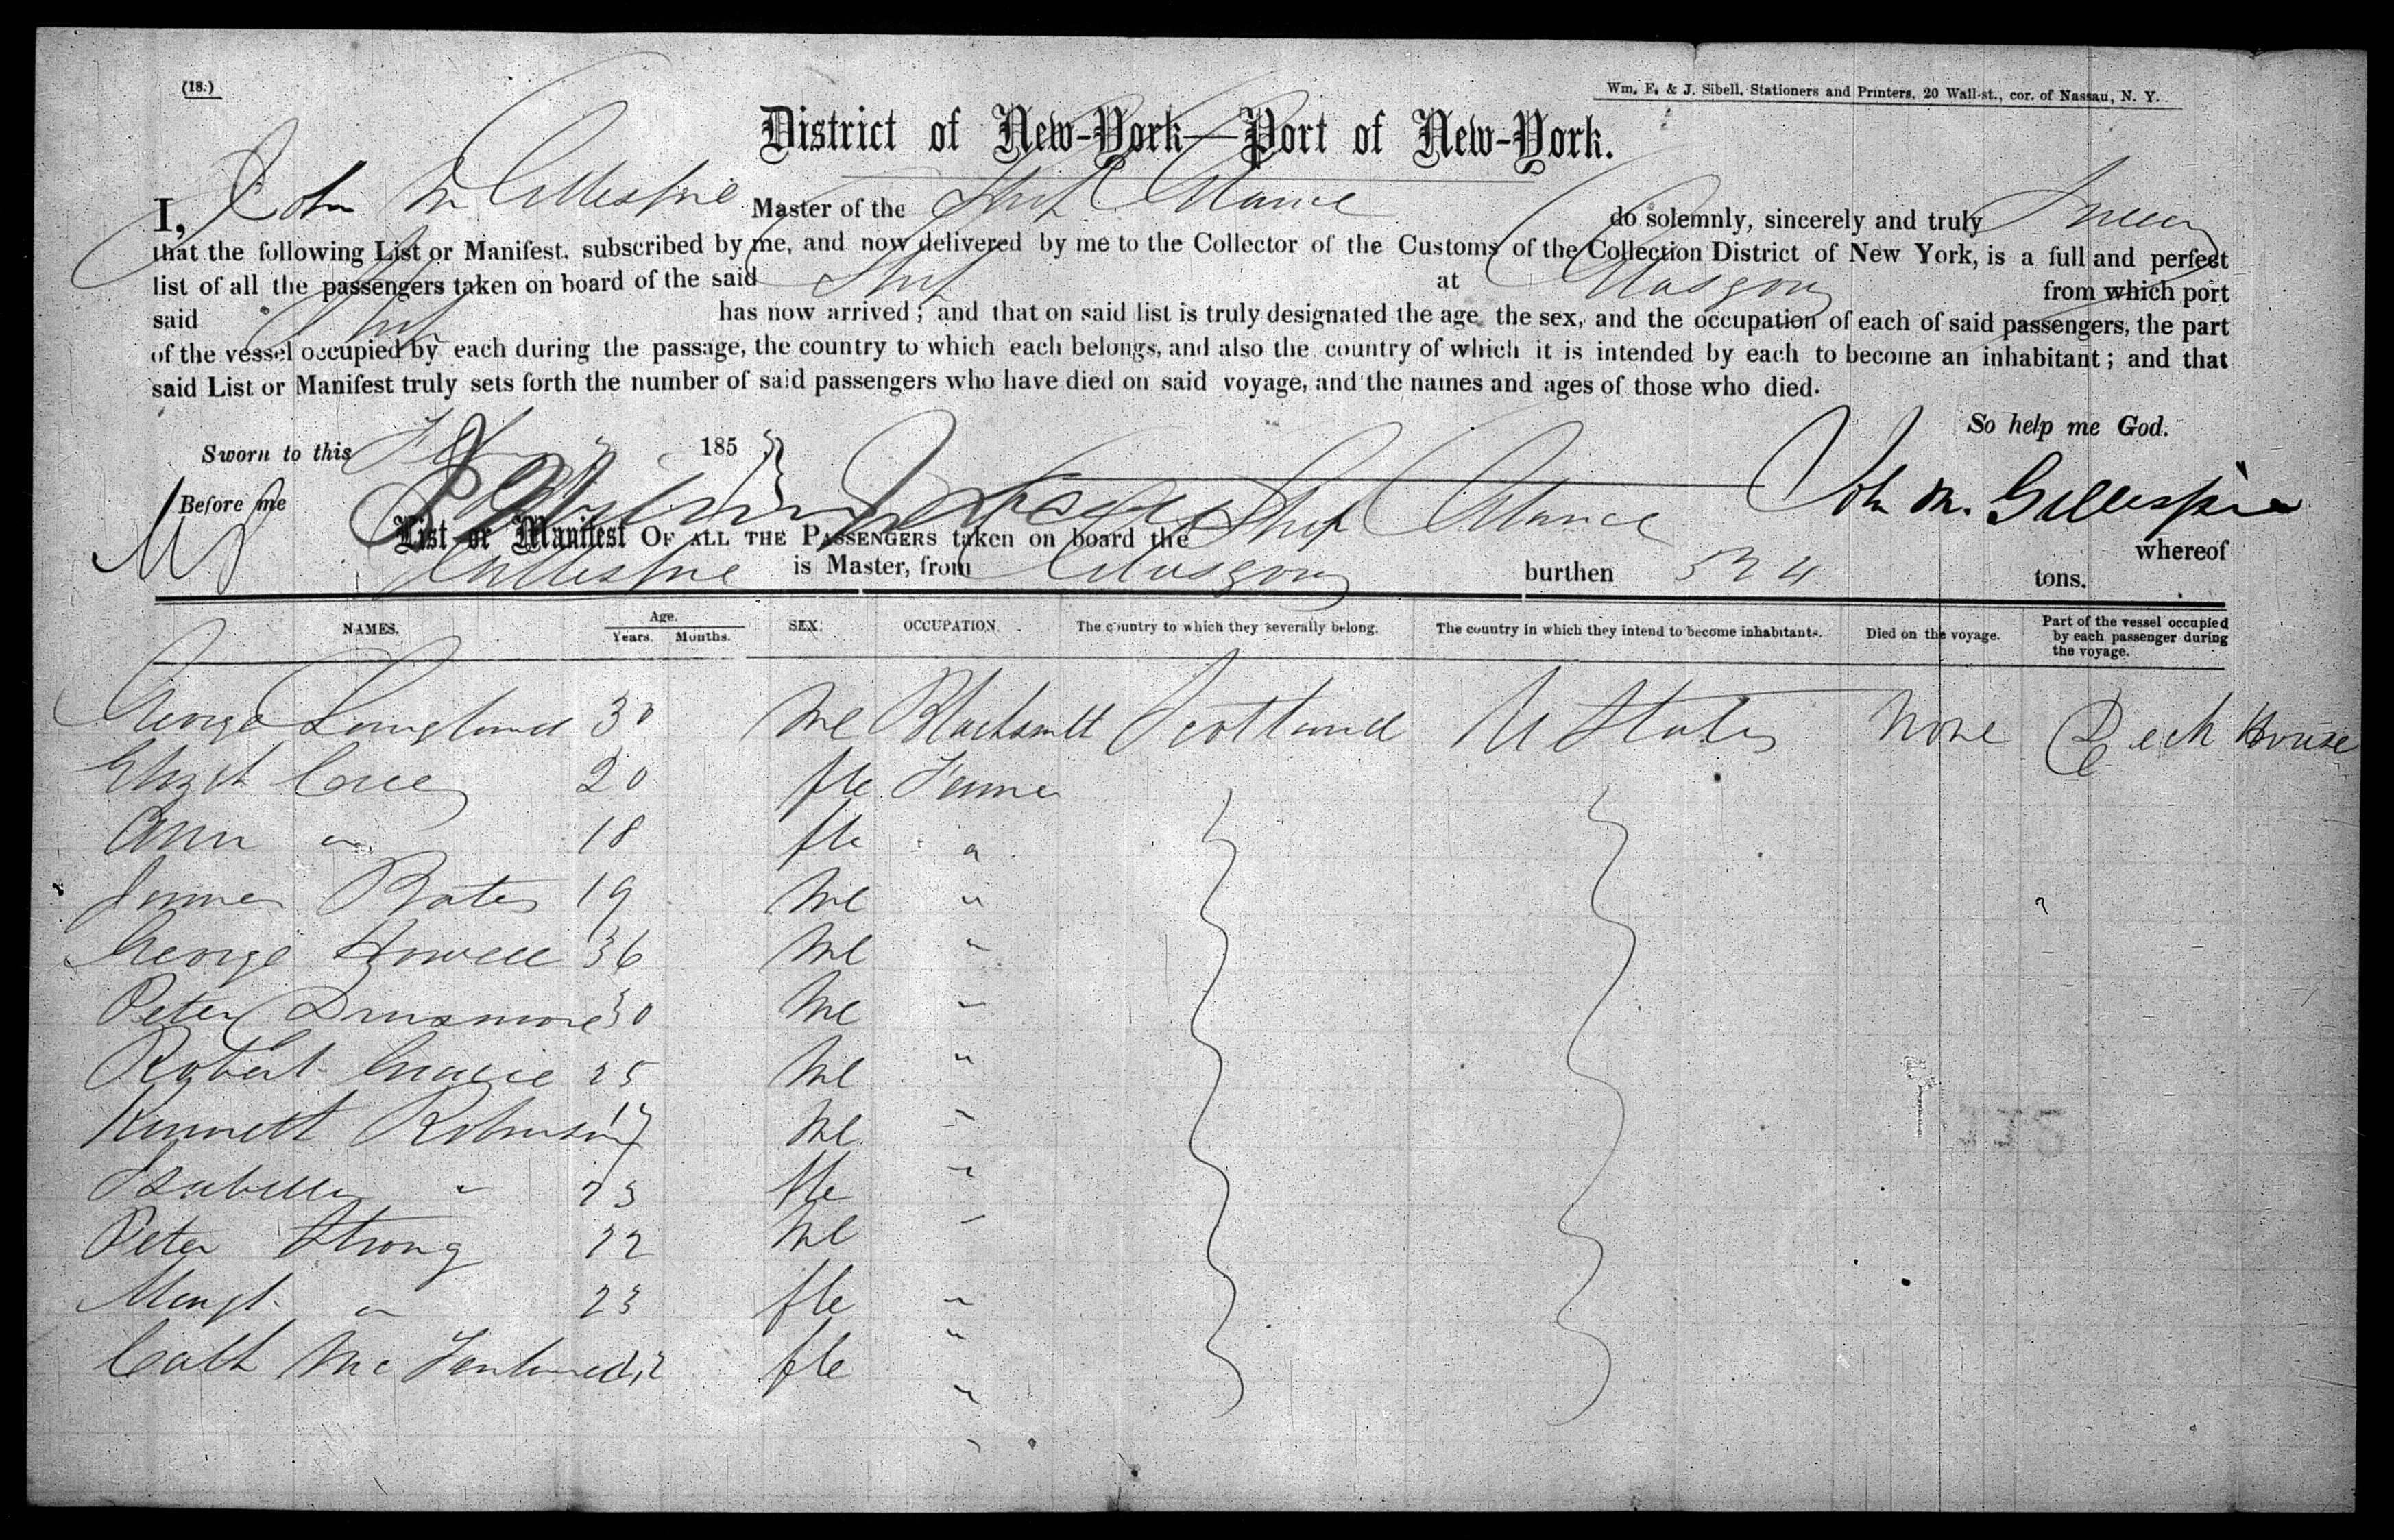 (18.)
Wm. E. & J. Sibell, Stationers and Printers, 20 Wall-st., cor. of Nassau, N. Y.
District of New-York—Port of New-York.
I, John M Gillespie Master of the Ship do solemnly, sincerely and truly Swear
that the following List or Manifest, subscribed by me, and now delivered by me to the Collector of the Customs of the Collection District of New York, is a full and perfect
list of all the passengers taken on board of the said Ship at Glasgow from which port
said Ship has now arrived; and that on said list is truly designated the age, the sex, and the occupation of each of said passengers, the part
of the vessel occupied by each during the passage, the country to which each belongs, and also the country of which it is intended by each to become an inhabitant; and that
said List or Manifest truly sets forth the number of said passengers who have died on said voyage, and the names and ages of those who died.
So help me God.
Sworn to this 185
Before me John M. Gillespie
List or Manifest OF ALL THE PASSENGERS taken on board the Ship whereof
Gillespie is Master, from Glasgow burthen 524 tons.
NAMES. Age. Years. Months. SEX. OCCUPATION. The country to which they severally belong. The country in which they intend to become inhabitants. Died on the voyage. Part of the vessel occupied by each passenger during the voyage.
George 30 Me Blacksmith Scotland U States None Deck House
Elizath 20 fle
Ann " 18 fle "
James Bates 19 Me "
George Howell 36 Me "
Peter Dinsmore 30 Me "
Robert Gracie 25 Me "
Kennett Robinson 17 Me "
Isabella " 23 fle "
Peter Strong 22 Me "
Margt " 23 fle "
Cath Mc fle "